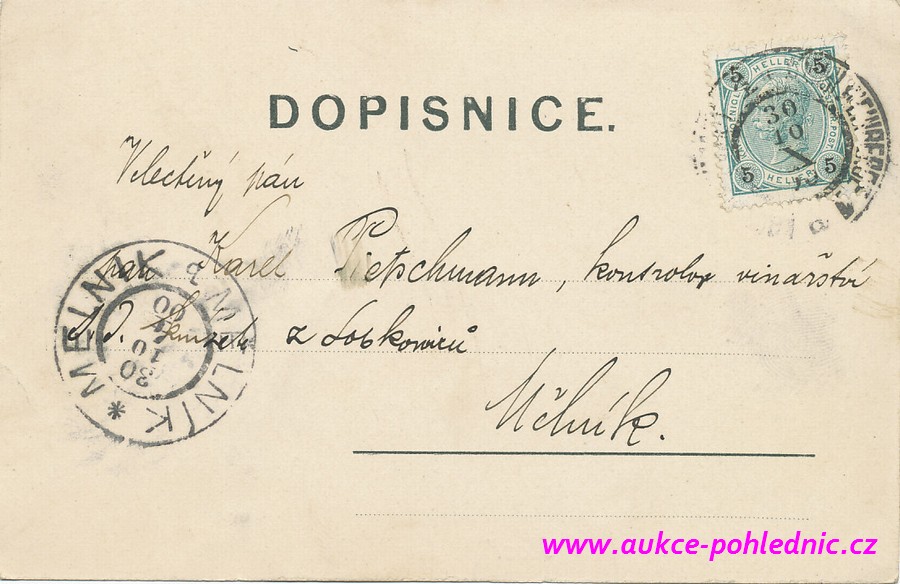 DOPISNICE.
5 HELLER 5
5 HELLER 5
30
10
Velectěný pán
pan Karel Pietschmann, kontrolor vinařství
J. J. z Lobkowiců
Mělník.
MELNIK MĚLNÍK *
30
10
00
www.aukce-pohlednic.cz